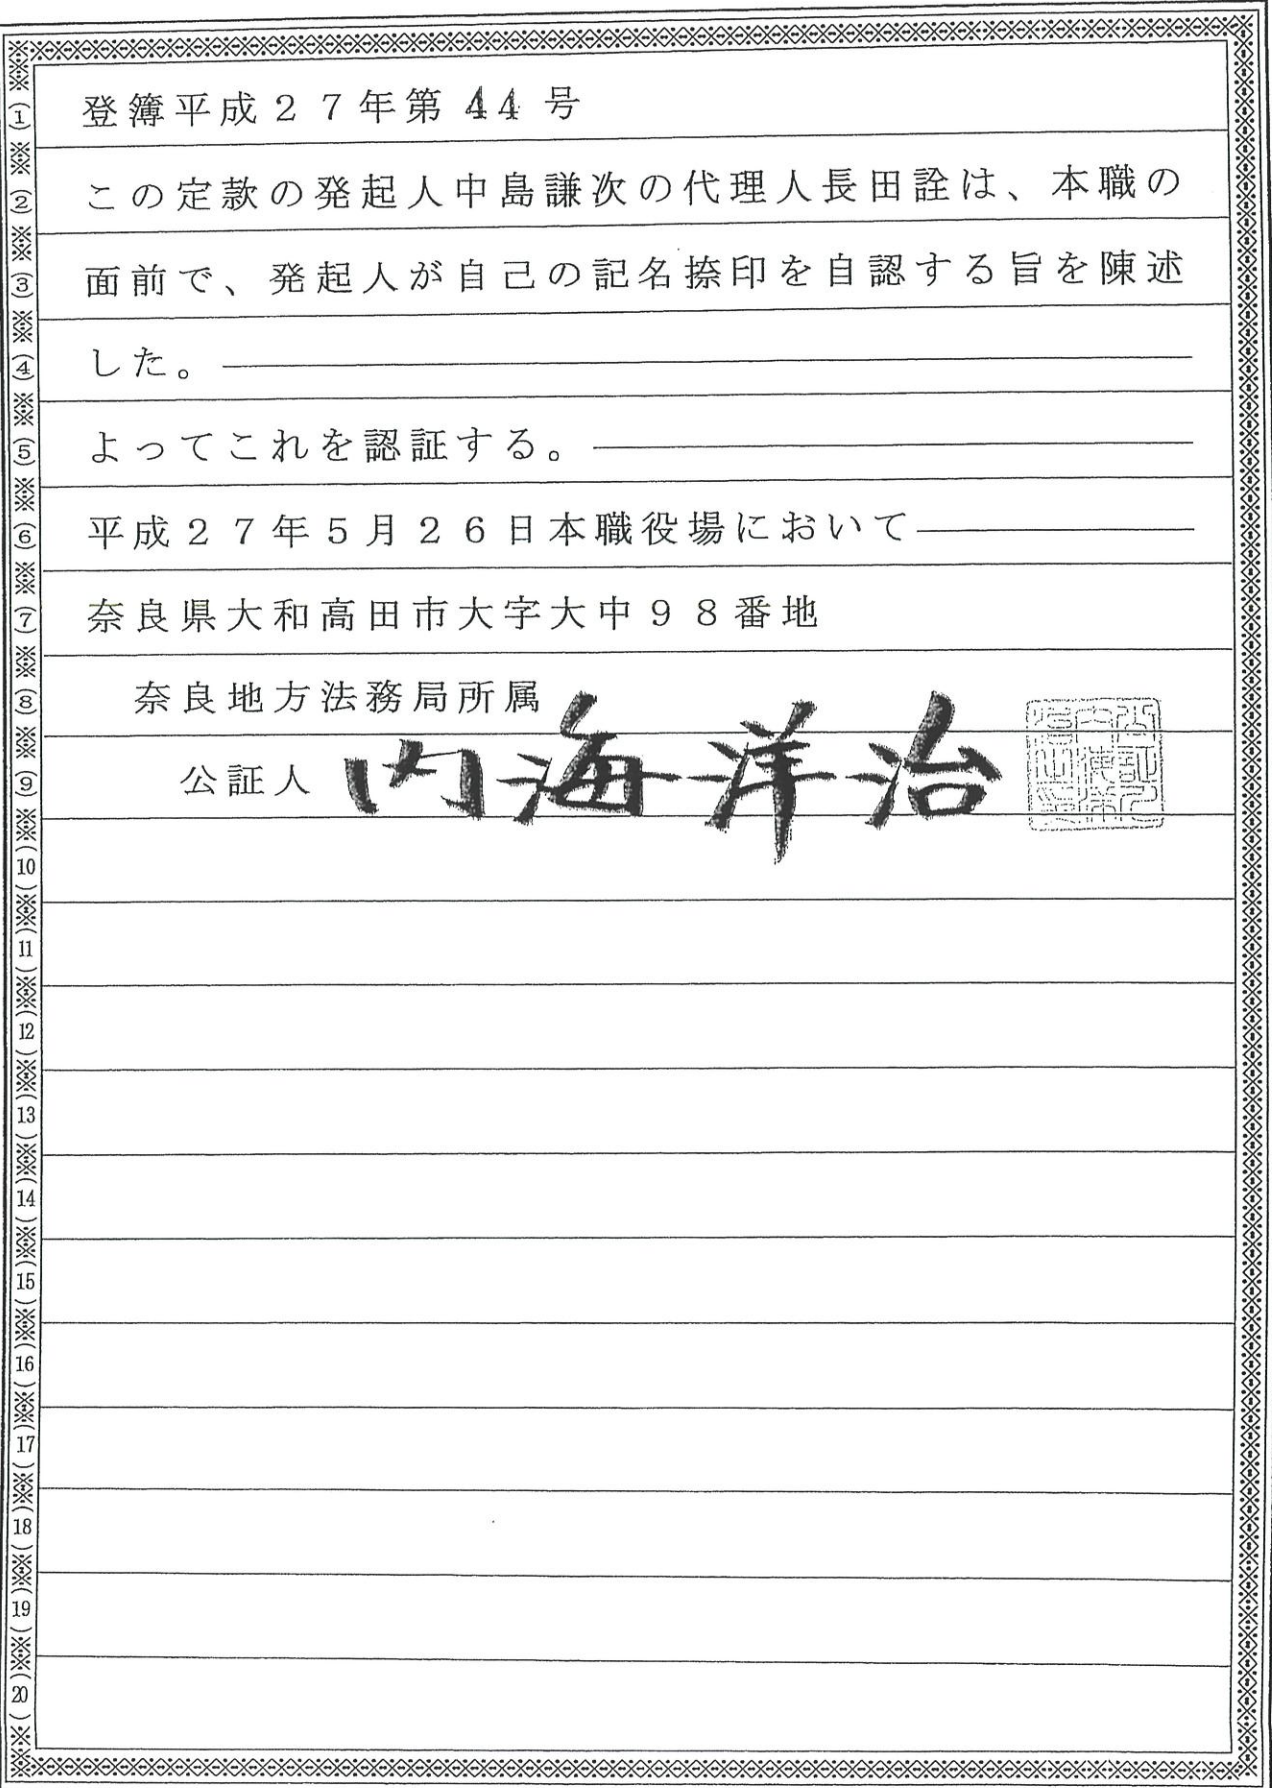 登簿平成２７年第４４号
この定款の発起人中島謙次の代理人長田詮は、本職の
面前で、発起人が自己の記名捺印を自認する旨を陳述
した。
よってこれを認証する。
平成２７年５月２６日本職役場において
奈良県大和高田市大字大中９８番地
奈良地方法務局所属
公証人 内海洋治
(1)
(2)
(3)
(4)
(5)
(6)
(7)
(8)
(9)
(10)
(11)
(12)
(13)
(14)
(15)
(16)
(17)
(18)
(19)
(20)